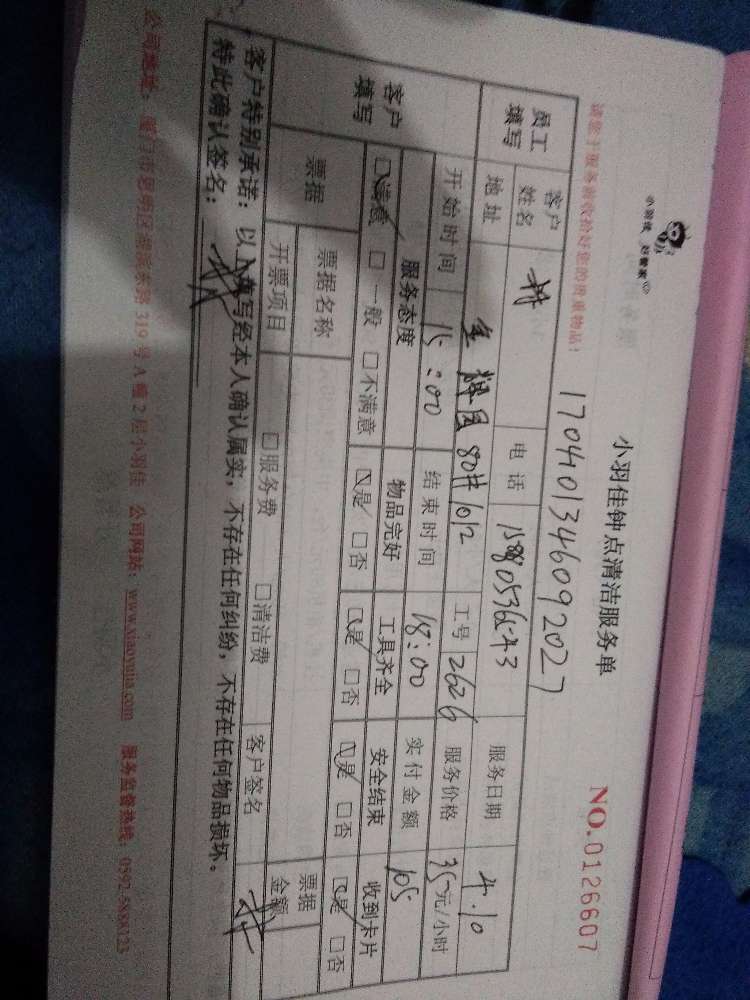 小羽佳 好管家
小羽佳钟点清洁服务单
NO.0126607
请您于服务前收拾好您的贵重物品!
170401346092027
员工填写
客户姓名
林
电话
服务日期
4.10
地址
80#1012
工号
2626
服务价格
35元/小时
客户填写
开始时间
15:00
结束时间
18:00
实付金额
105
服务态度
物品完好
工具齐全
安全结束
收到卡片
☑满意 □一般 □不满意
☑是 □否
☑是 □否
☑是 □否
☑是 □否
票据
票据名称
票据金额
开票项目
□服务费 □清洁费
客户签名
林
客户特别承诺:以上填写经本人确认属实,不存在任何纠纷,不存在任何物品损坏。
特此确认签名:
林
公司地址:厦门市思明区湖滨东路319号A幢2层小羽佳 公司网站:www.xiaoyujia.com 服务监督热线:0592-5888123